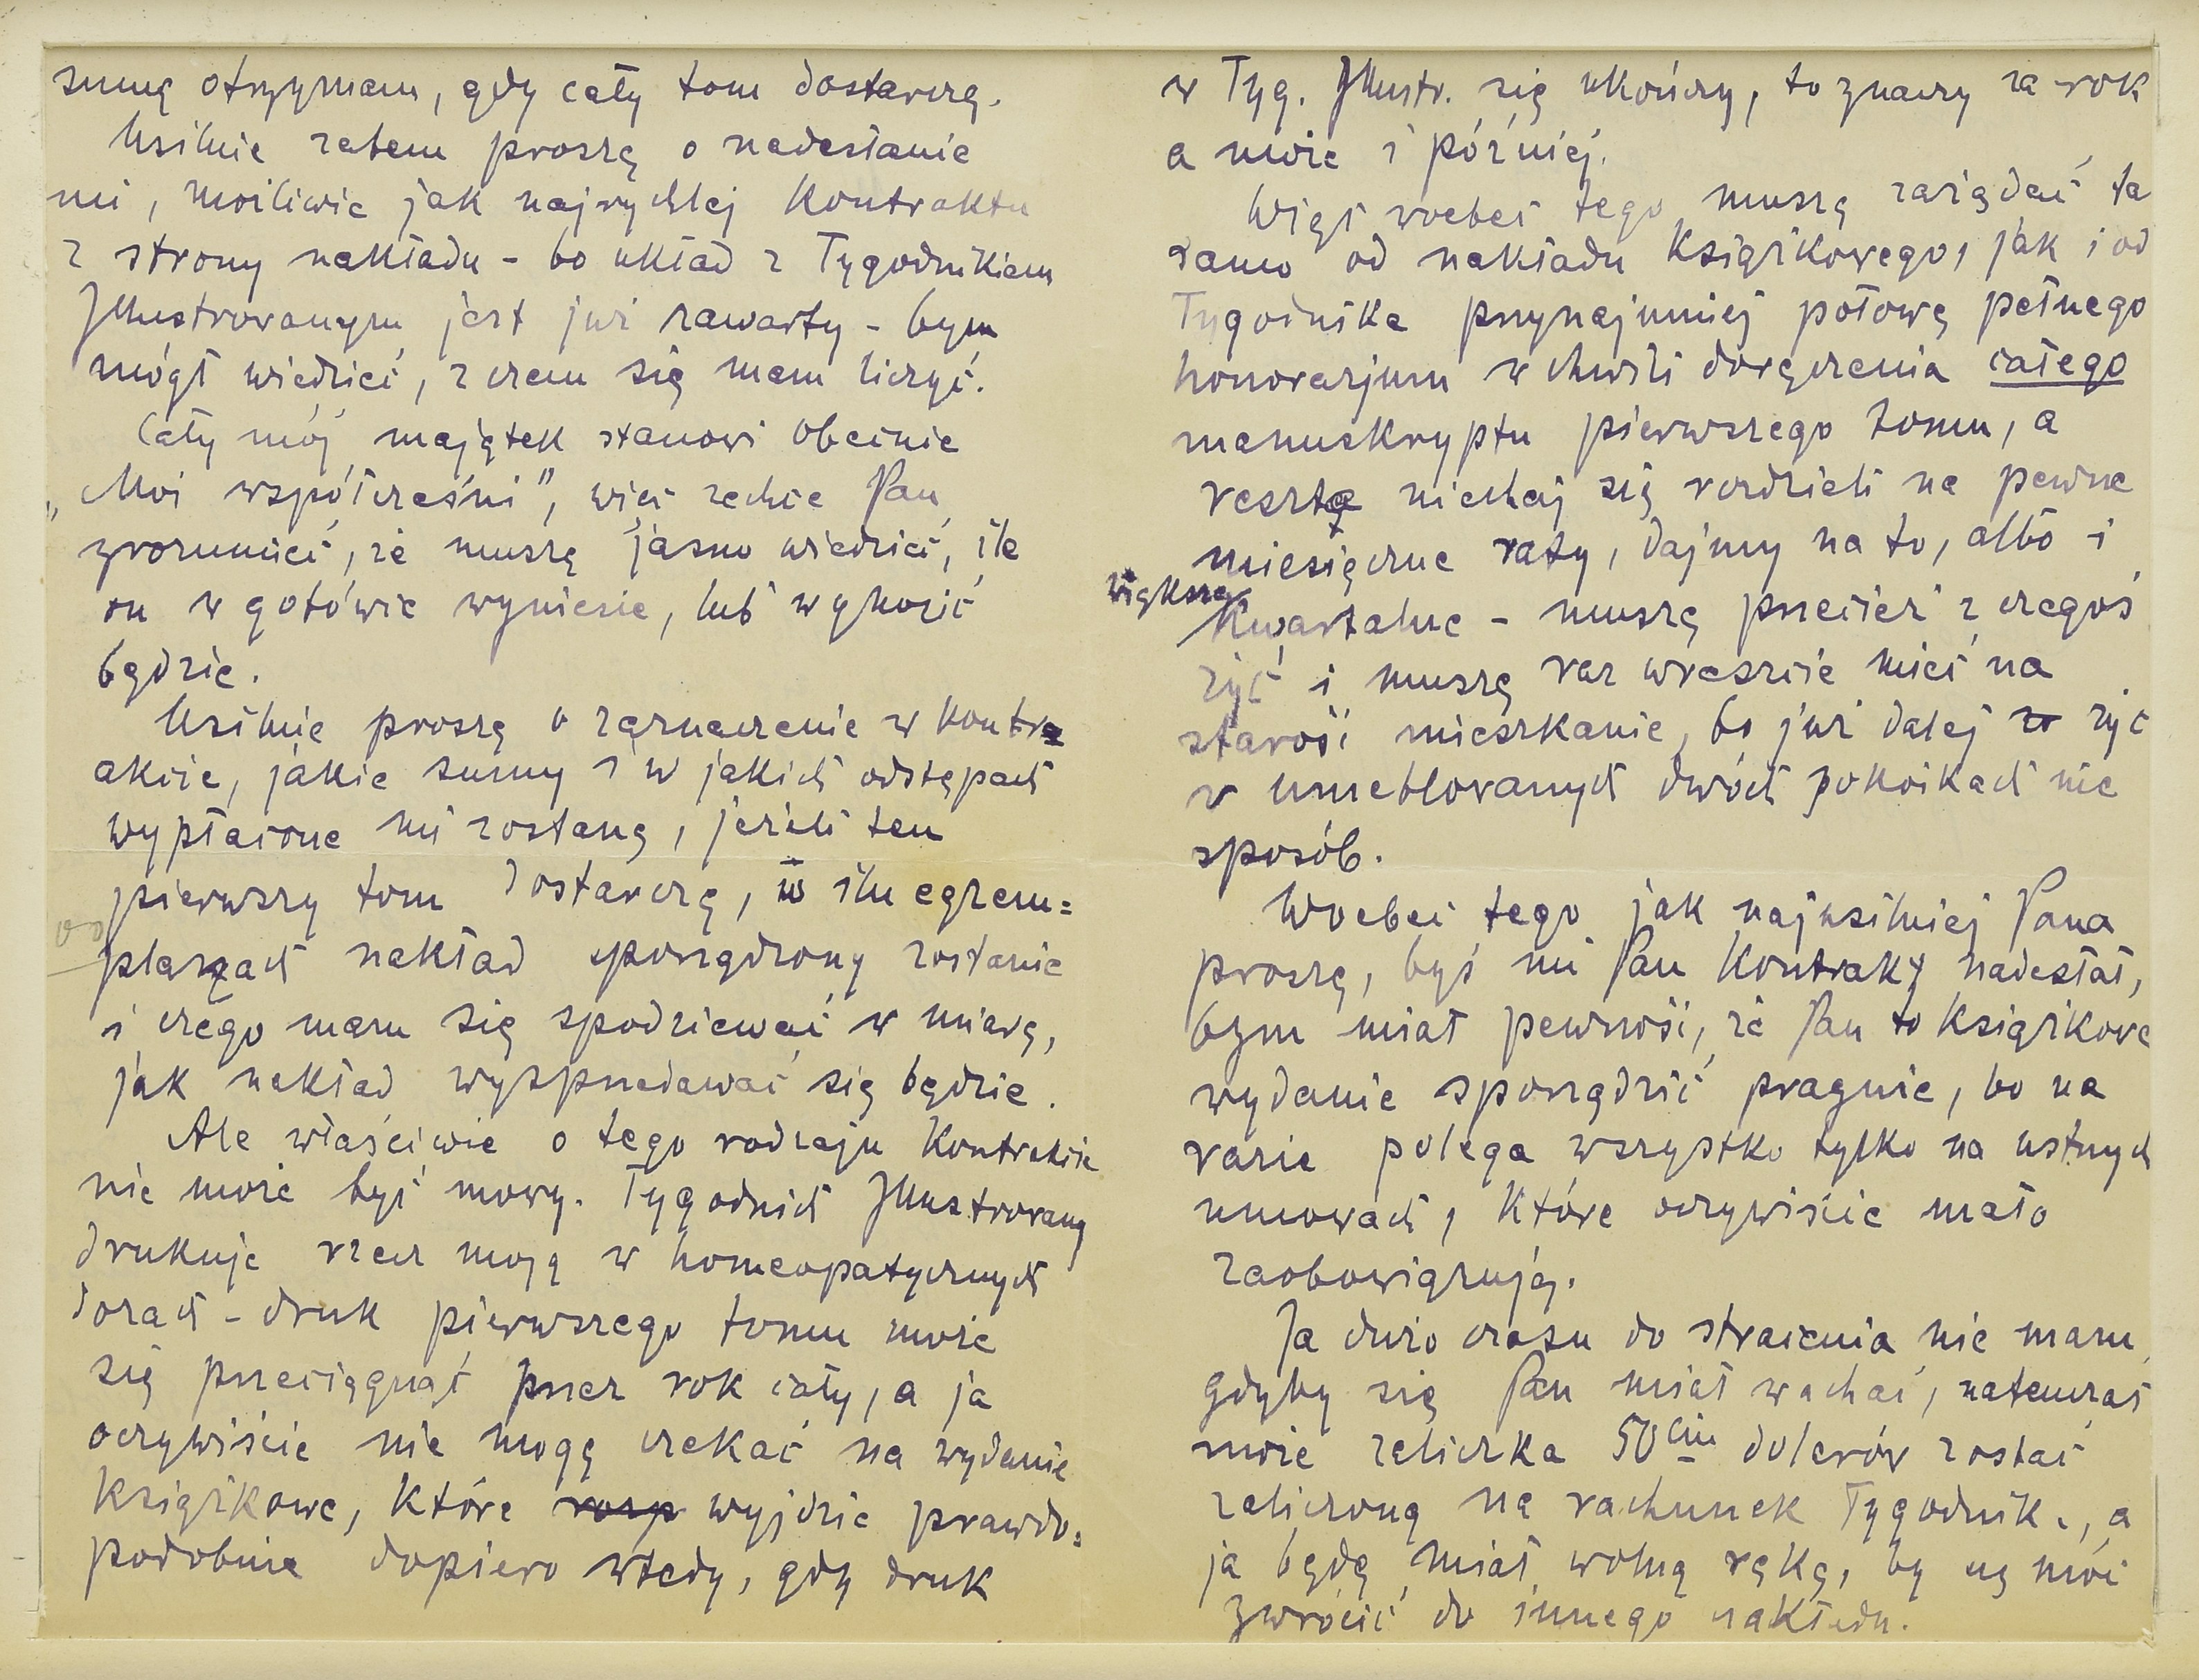 sumę otrzymam, gdy cały tom dostarczę.
Usilnie zatem proszę o nadesłanie
mi, możliwie jak najrychlej kontraktu
z strony nakładu - bo układ z Tygodnikiem
Illustrowanym jest już zawarty - bym
mógł wiedzieć, z czem się mam liczyć.
Cały mój majątek stanowi obecnie
„Moi współcześni”, więc zechce Pan
zrozumieć, że muszę jasno wiedzieć, ile
on w gotówce wyniesie, lub wynosić
będzie.
Usilnie proszę o zaznaczenie w kontra
akcie, jakie sumy i w jakich odstępach
wypłacone mi zostaną, jeżeli ten
pierwszy tom dostarczę, w ilu egzem=
plarzach nakład sporządzony zostanie
i czego mam się spodziewać w miarę,
jak nakład wysprzedawać się będzie.
Ale właściwie o tego rodzaju kontrakcie
nie może być mowy. Tygodnich Illustrowany
drukuje rzecz moją w homeopatycznych
dozach - druk pierwszego tomu może
się przeciągnąć przez rok cały, a ja
oczywiście nie mogę czekać na wydanie
książkowe, które rozp wyjdzie prawdo=
podobnie dopiero wtedy, gdy druk
w Tyg. Illustr. się ukończy, to znaczy za rok
a może i później.
Więc wobec tego muszę zażądać ta
samo od nakładu książkowego, jak i od
Tygodnika przynajmniej połowę pełnego
honorarjum w chwili doręczenia całego
manuskryptu pierwszego tomu, a
resztę niechaj się rozdzieli na pewne
miesięczne raty, dajmy na to, albo i
większe kwartalne - muszę przecież z czegoś
żyć i muszę raz wreszcie mieć na
starość mieszkanie, bo już dalej w żyć
w umeblowanych dwóch pokoikach nie
sposób.
Wobec tego jak najusilniej Pana
proszę, byś mi Pan kontrakt nadesłał,
bym miał pewność, że Pan to książkowe
wydanie sporządzić pragnie, bo na
razie polega wszystko tylko na ustnych
umowach, które oczywiście mało
zaobowiązują.
Ja dużo czasu do stracenia nie mam
gdyby się Pan miał wachać, natenczas
może zaliczka 50ciu dolarów zostać
zaliczoną na rachunek Tygodnik., a
ja będę miał wolną rękę, by się móc
zwrócić do innego nakładu.